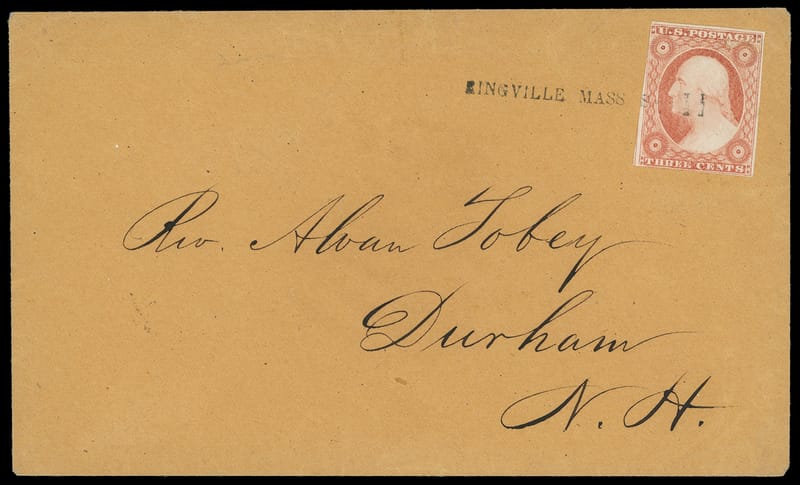 U.S. POSTAGE
RINGVILLE MASS S 11
THREE CENTS
Rev. Alvan Tobey
Durham
N. H.